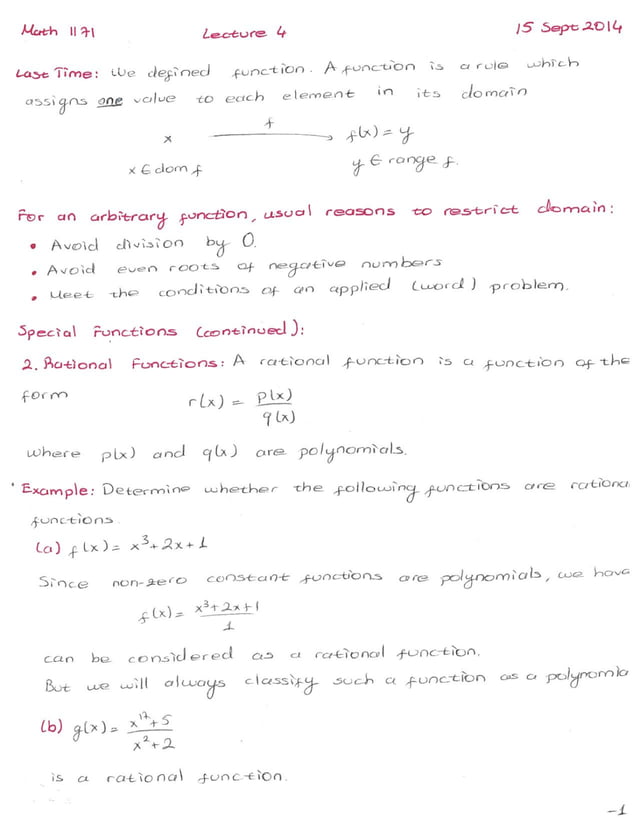 Math 1171 Lecture 4 15 Sept 2014
Last Time: We defined function. A function is a rule which
assigns one value to each element in its domain
f
x ⟶ f(x) = y
x ∈ dom f y ∈ range f.
For an arbitrary function, usual reasons to restrict domain:
• Avoid division by 0.
• Avoid even roots of negative numbers
• Meet the conditions of an applied (word) problem.
Special Functions (continued):
2. Rational Functions: A rational function is a function of the
form r(x) = p(x)/q(x)
where p(x) and q(x) are polynomials.
Example: Determine whether the following functions are rationa
functions
(a) f(x) = x³+2x+1
Since non-zero constant functions are polynomials, we have
f(x) = x³+2x+1/1
can be considered as a rational function.
But we will always classify such a function as a polynomia
(b) g(x) = x¹⁷+5/x²+2
is a rational function.
-1